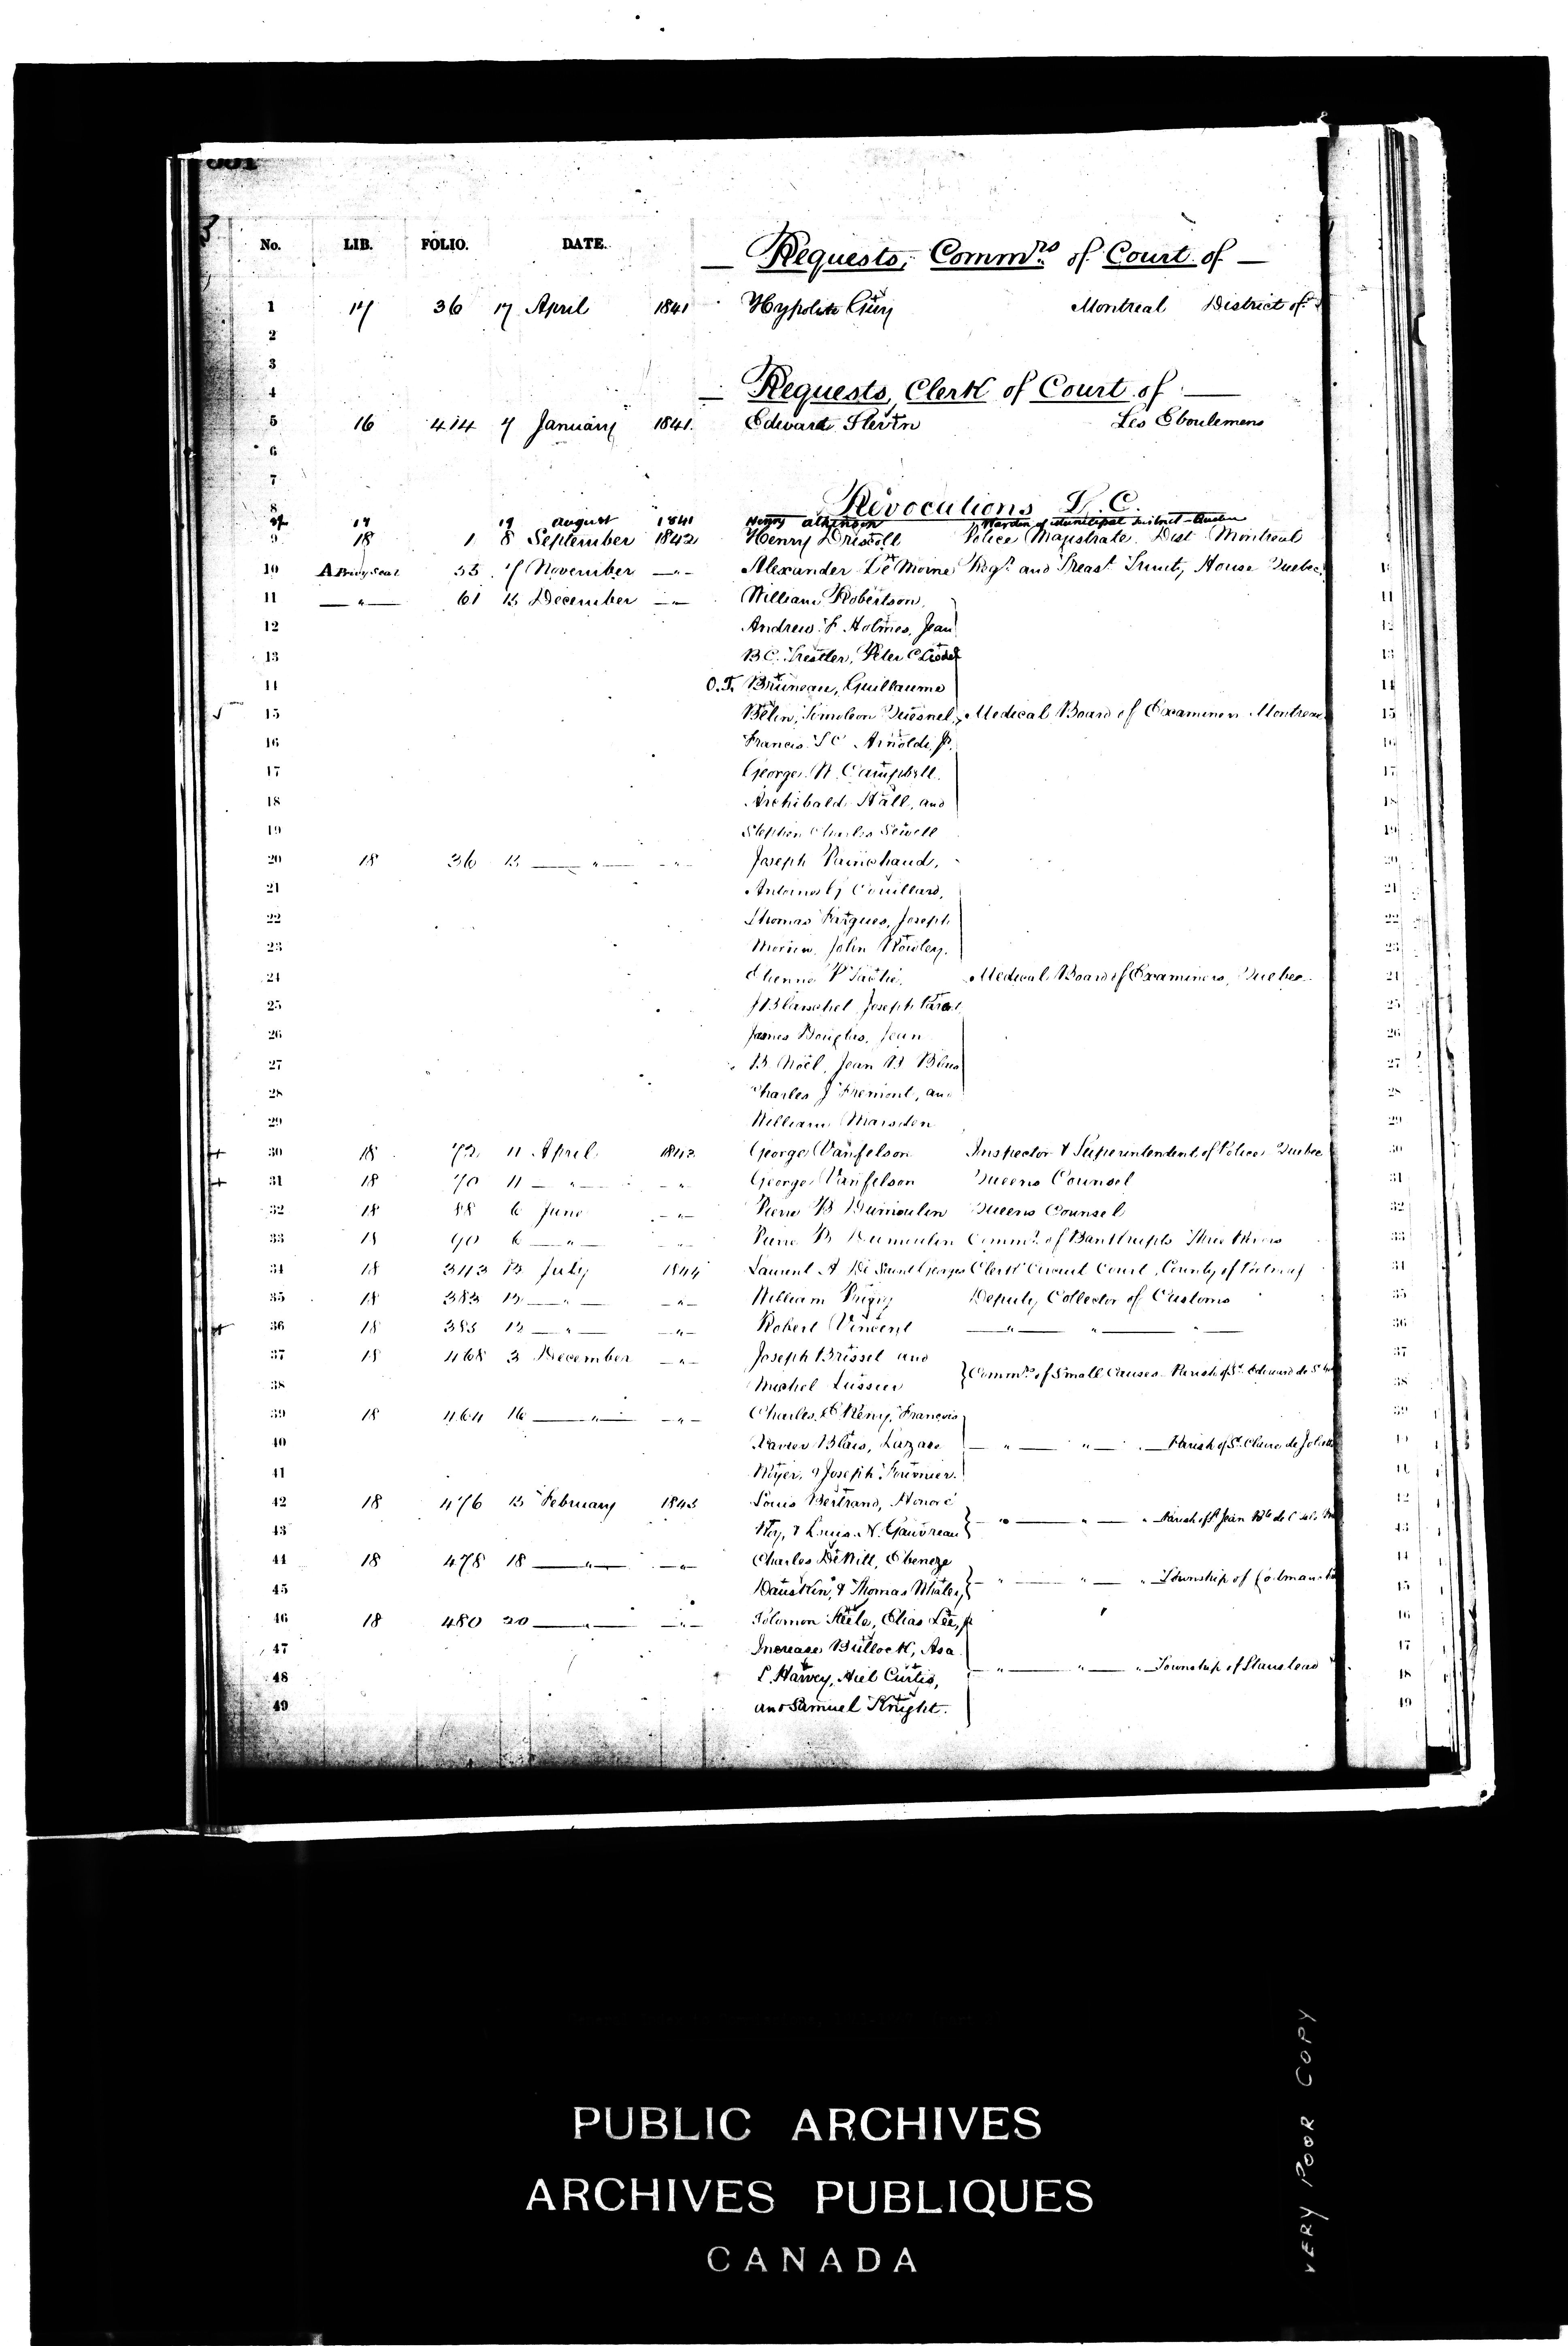 No. LIB. FOLIO. DATE.
— Requests, Commrs of Court of —
1 17 36 17 April 1841 Hypolite Guy Montreal District of
2
3
— Requests, Clerk of Court of —
4
5 16 414 7 January 1841. Edward Slevin Les Eboulemens
6
7
Revocations L.C.
8
17 19 august 1841 Henry atkinson Warden of Municipal District - Quebec
9 18 1 8 September 1842 Henry Driscoll Police Magistrate Dist Montreal
10 A Privy Seal 55 7 November —"— Alexander Le Moine Regr. and Treasr. Trinity House Quebec.
11 —"— 61 15 December —"— William Robertson,
12 Andrew F Holmes, Jean
13 B.C. Trestler, Peter C Leodel
14 O.T. Bruneau, Guillaume
15 Belin, Timoleon Quesnel, Medical Board of Examiners Montreal
16 Francis T C Arnoldi, Jr.
17 George W. Campbell.
18 Archibald Hall, and
19 Stephen Charles Sewell
20 18 36 15 —"— —"— Joseph Painchaud,
21 Antoine G Couillard,
22 Thomas Fargues, Joseph
23 Morrin, John Rowley.
24 Etienne P Taché, Medical Board of Examiners, Quebec
25 J Blanchet, Joseph Parant
26 James Douglas, Jean
27 B. Noël, Jean B Blais
28 Charles J Fremont, and
29 William Marsden
30 18 72 11 April 1843 George Vanfelson Inspector & Superintendent of Police Quebec
31 18 70 11 —"— —"— George Vanfelson Queens Counsel
32 18 88 6 June —"— Pierre B Dumoulin Queens Counsel
33 18 90 6 —"— —"— Pierre B Dumoulin Commr. of Bankrupts Three Rivers
34 18 343 13 July 1844 Laurent A De Saint Georges Clerk Circuit Court, County of Portneuf
35 18 383 13 —"— —"— William Deputy Collector of Customs
36 18 385 13 —"— —"— Robert Vincent —"— "— "—
37 18 468 3 December —"— Joseph Brissel and
38 Michel Lussier } Commrs. of Small Causes Parish of St. Edward de
39 18 464 16 —"— —"— Charles St Remy, Francois
40 Xavier Blais, Lazare —"— "— "— Parish of St. Claire de Joliette
41 Royer, & Joseph Fournier.
42 18 476 15 February 1845 Louis Bertrand, Honoré
43 Roy, & Louis N. Gauvreau } —"— "— " Parish of St Jean Bte de
44 18 478 18 —"— —"— Charles DeWitt, Ebenezer
45 Dauskin, & Thomas Whaley, } —"— "— " Township of
46 18 480 20 —"— —"— Solomon Steele, Elias Lee, Jr
47 Increase Bullock, Asa
48 L. Harvey, Hiel Curtis, —"— "— " Township of Stanstead
49 and Samuel Knight.
PUBLIC ARCHIVES
ARCHIVES PUBLIQUES
CANADA
VERY POOR COPY